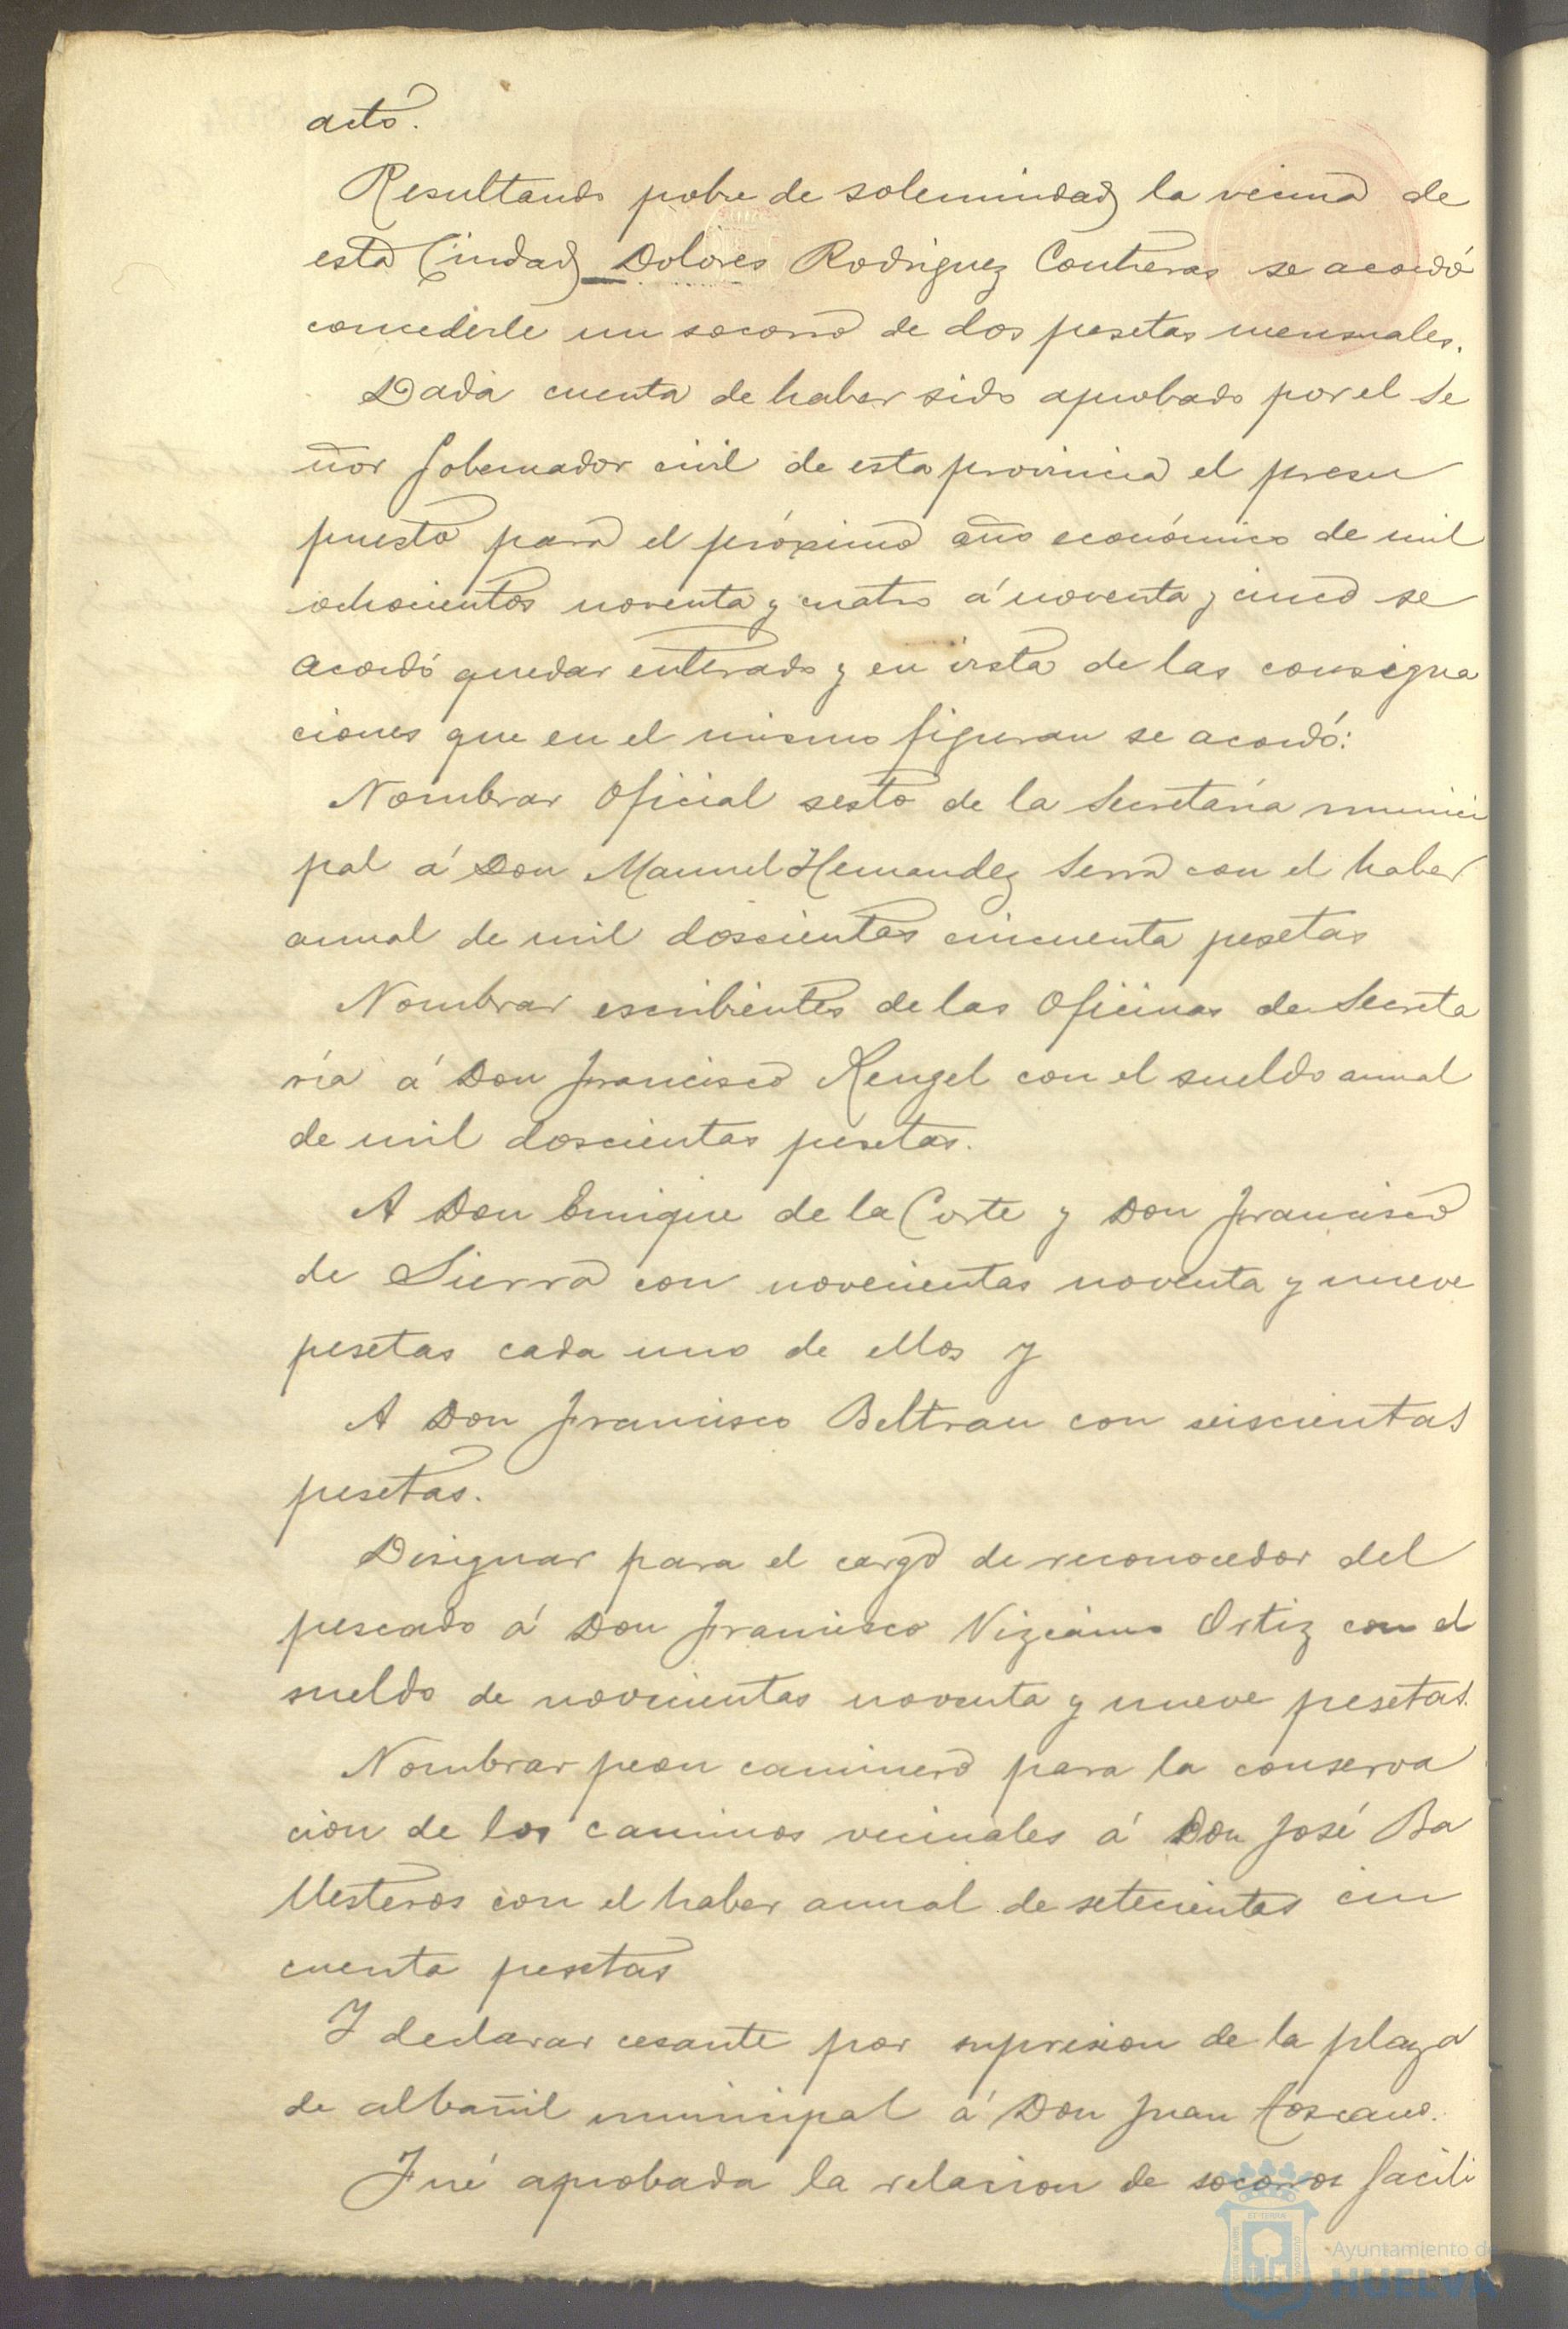 acto.
Resultando pobre de solemnidad la vecina de
esta Ciudad Dolores Rodriguez Contreras se acordó
concederle un socorro de dos pesetas mensuales.
Dada cuenta de haber sido aprobado por el Se
ñor Gobernador civil de esta provincia el presu
puesto para el próximo año económico de mil
ochocientos noventa y cuatro á noventa y cinco se
acordó quedar enterado y en vista de las consigna
ciones que en el mismo figuran se acordó:
Nombrar Oficial sesto de la Secretaría munici
pal á Don Manuel Hernandez Serra con el haber
anual de mil doscientas cincuenta pesetas
Nombrar escribientes de las Oficinas de Secreta
ría á Don Francisco Rengel con el sueldo anual
de mil doscientas pesetas.
A Don Enrique de la Corte y Don Francisco
de Sierra con novecientas noventa y nueve
pesetas cada uno de ellos y
A Don Francisco Beltran con seiscientas
pesetas.
Designar para el cargo de reconocedor del
pescado á Don Francisco Vizcaino Ortiz con el
sueldo de novecientas noventa y nueve pesetas.
Nombrar peon caminero para la conserva
cion de los caminos vecinales á Don José Ba
llesteros con el haber anual de setecientas cin
cuenta pesetas
Y declarar cesante por supresion de la plaza
de albañil municipal á Don Juan Toscano.
Fué aprobada la relacion de socorros facili
Ayuntamiento de
HUELVA